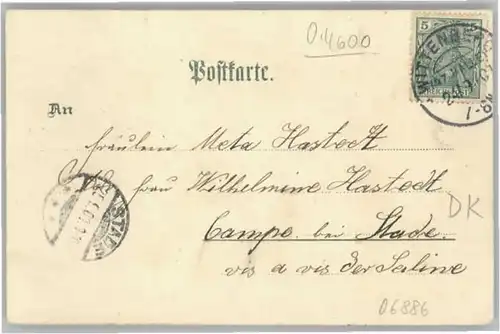 0.4600
5 5
WITTENBE
Postkarte.
An
Fräulein Meta Hastedt
Frau Wilhelmine Hastedt
DK
STADE
Campe bei Stade.
vis a vis der Saline
06886